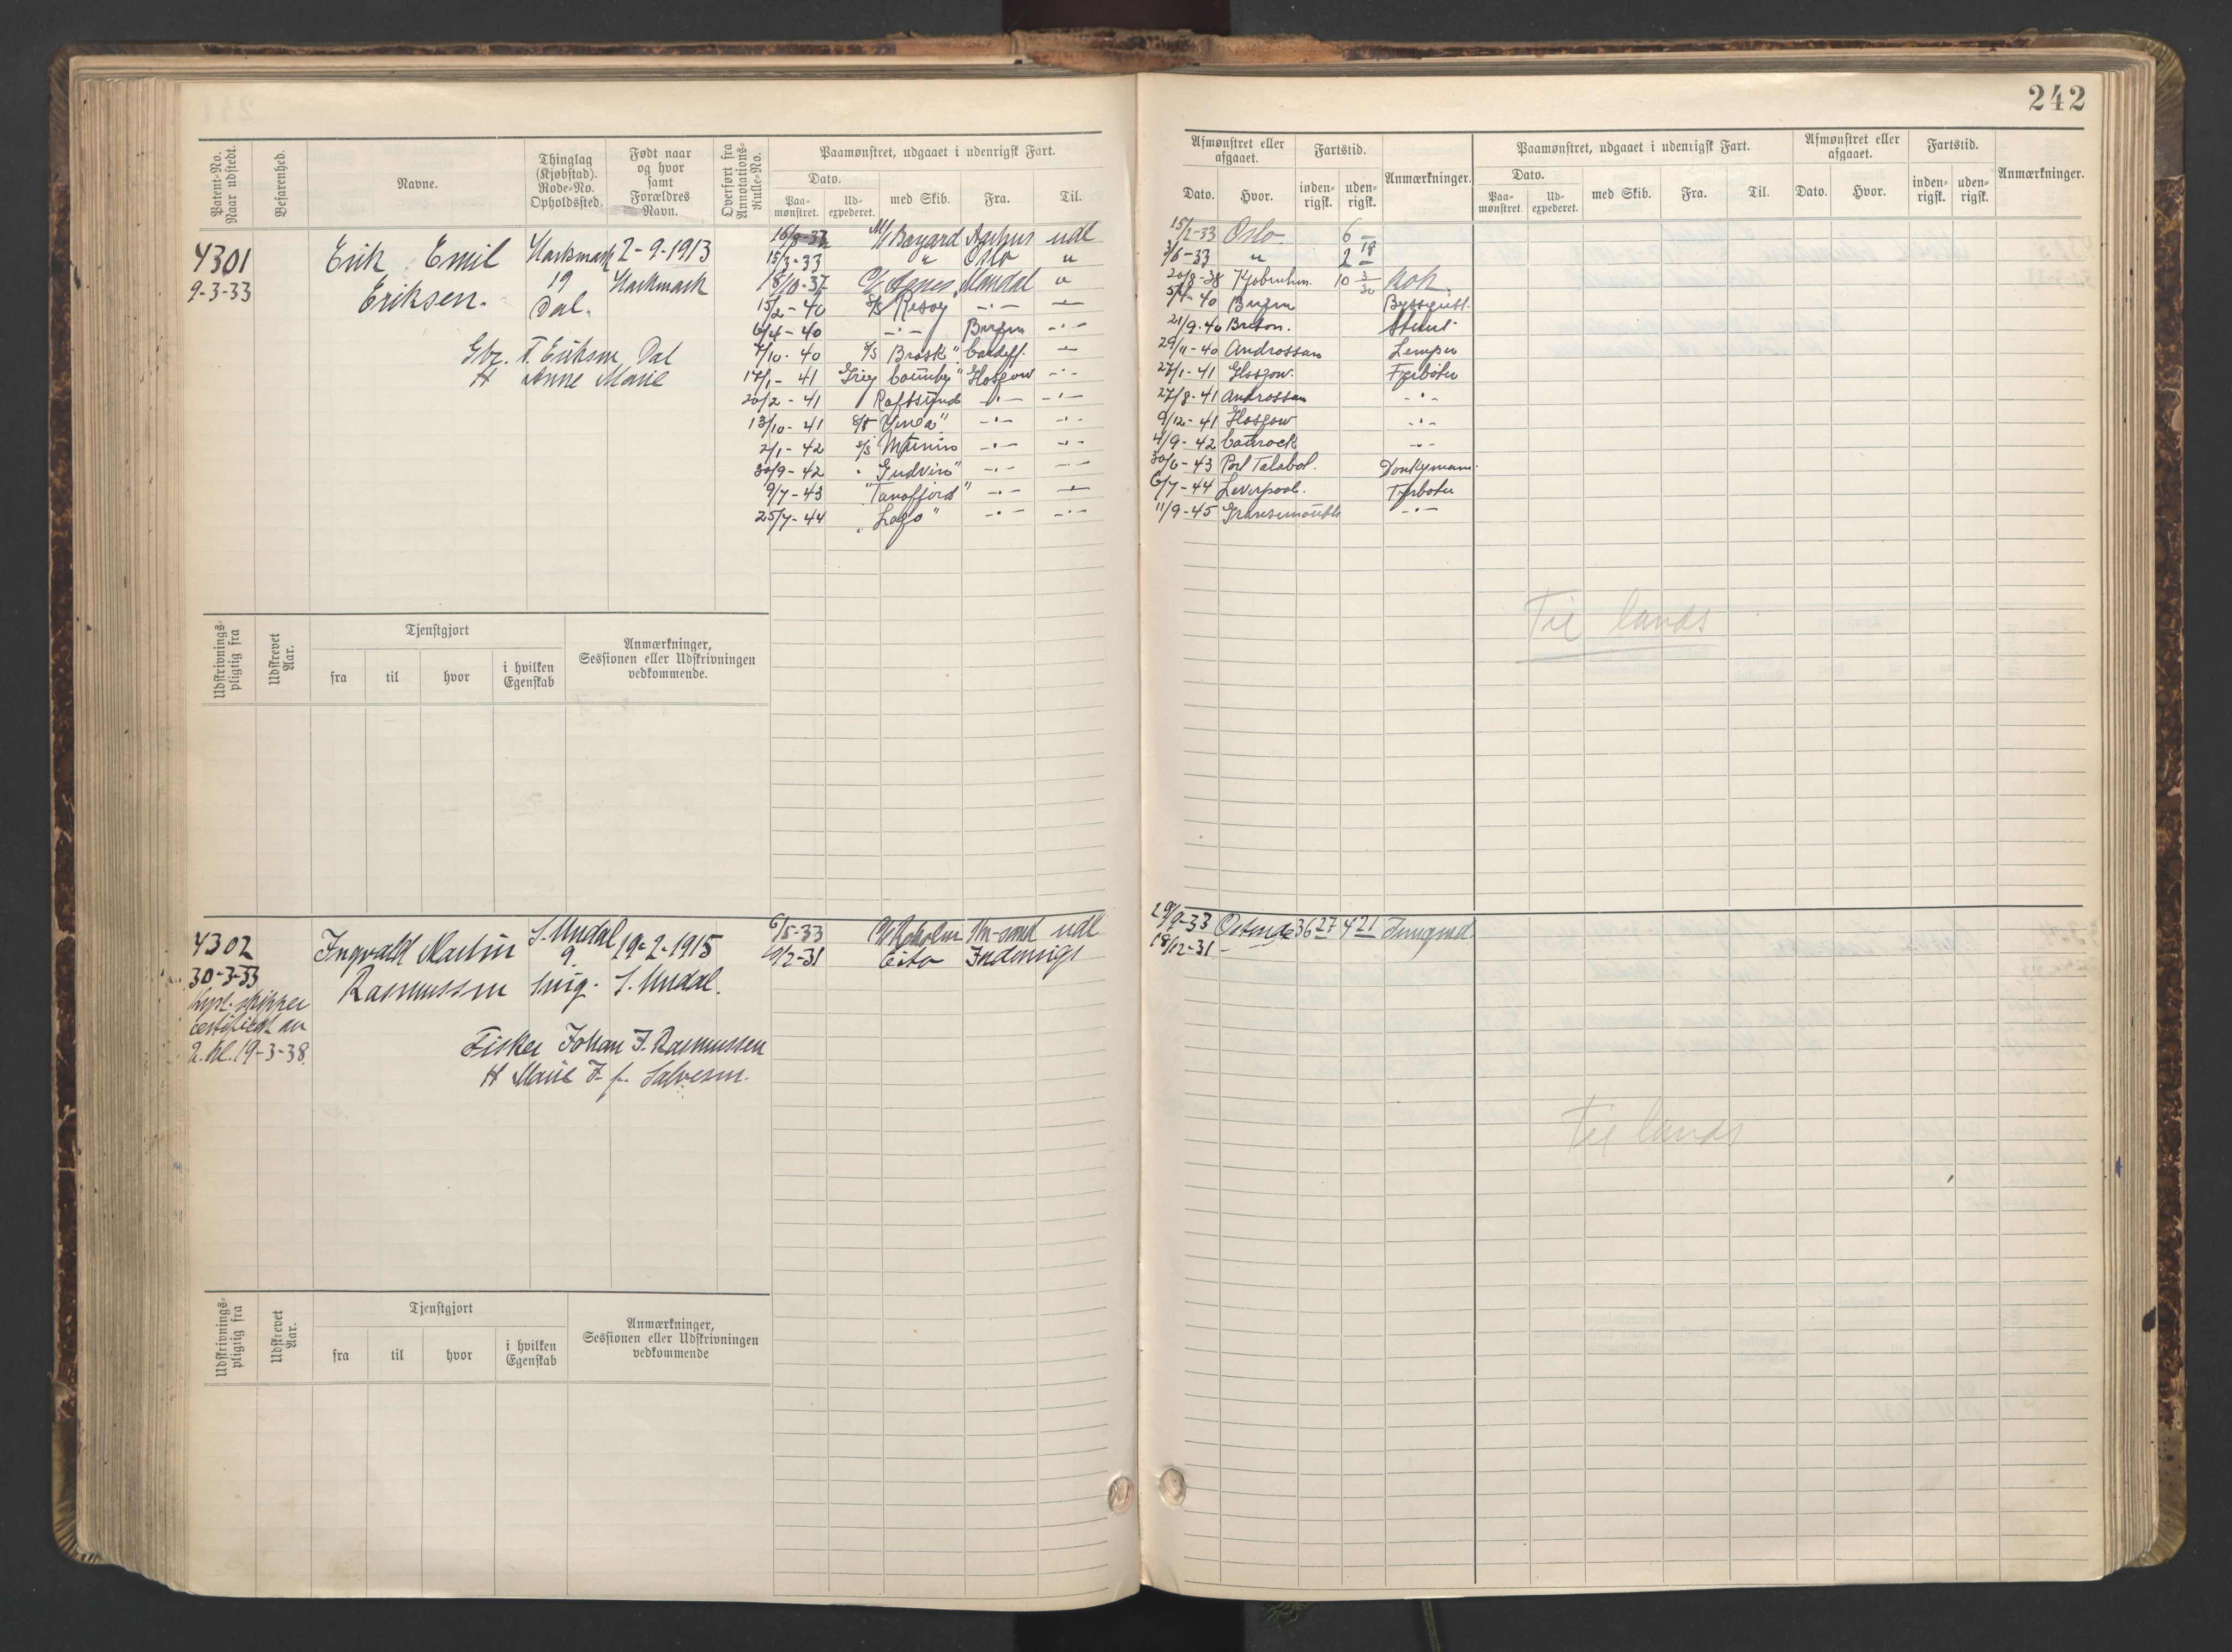 242
Patent-No. Naar udstedt.
Befarenhed.
Navne.
Thinglag (Kjøbstad). Rode-No. Opholdssted.
Født naar og hvor samt Forældres Navn.
Overført fra Annotations-Rulle-No.
Paamønstret, udgaaet i udenrigsk Fart.
Dato.
Paa-mønstret.
Ud-expederet.
med Skib.
Fra.
Til.
Afmønstret eller afgaaet.
Fartstid.
Dato.
Hvor.
inden-rigsk.
uden-rigsk.
Anmærkninger.
Paamønstret, udgaaet i udenrigsk Fart.
Dato.
Paa-mønstret
Ud-expederet.
med Skib.
Fra.
Til.
Afmønstret eller afgaaet.
Fartstid.
Dato.
Hvor.
inden-rigsk.
uden-rigsk.
Anmærkninger.
4301
9-3-33
Erik Emil
Eriksen.
Harkmark
19
Dal.
2-9-1913
Harkmark
Gbr. T. Eriksen Dal
H Anne Marie
M/S Bayard Aarhus udl 15/2-33 Oslo. 6
15/3-33 " Oslo " 3/6-33 " 2 18
18/10-37 Agnes Mandal " 20/8-38 Kjøbenhavn. 10 3/30 Kok.
15/2-40 S/S -·- -·- 5/4-40 Bergen
6/4-40 -·- Bergen -·- 21/9-40 Stuert
7/10-40 S/S Brask" Cardiff. -·- 29/11-40 Androssan Lemper
17/1-41 Glasgow -·- 27/1-41 Glasgow. Fyrbøter
20/2-41 Raftsund -·- -·- 27/8-41 Androssan -·-
13/10-41 S/S -·- -·- 9/12-41 Glasgow -·-
2/1-42 S/S Munin -·- -·- 4/9-42 -·-
30/9-42 " Gudvin" -·- -·- 30/6-43 Port Talabot. Donkeymann.
9/7-43 "Tanafjord" -·- -·- 6/7-44 Leverpool. Fyrbøter
25/7-44 "Lago" -·- -·- 11/9-45 -·-
Til lands
Udskrivnings-pligtig fra
Udskrevet Aar.
Tjenstgjort
fra
til
hvor
i hvilken Egenskab
Anmærkninger, Sessionen eller Udskrivningen vedkommende.
4302
30-3-33
Kyst-skipper
certifikat av
2. kl. 19-3-38.
Ingvald Martin
Rasmussen
S. Undal
9
19-2-1915
S. Undal.
Fisker Johan F. Rasmussen
H Marie F. f. Salvesen.
6/5-33 Kr-sand udl 29/9-33 Ostende 36 27 4 21 Jungmd.
Indenrigs 18/12-31 -
Til lands
Udskrivnings-pligtig fra
Udskrevet Aar.
Tjenstgjort
fra
til
hvor
i hvilken Egenskab
Anmærkninger, Sessionen eller Udskrivningen vedkommende